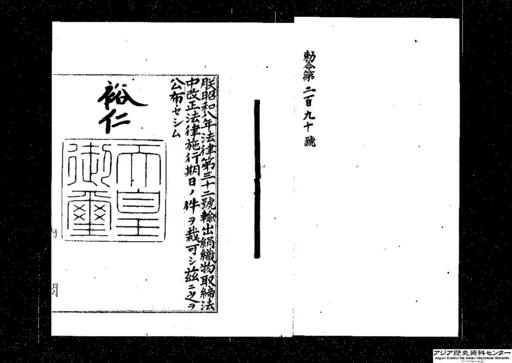 勅令第二百九十號
朕昭和八年法律第三十二號輸出絹織物取締法
中改正法律施行期日ノ件ヲ裁可シ茲ニ之ヲ
公布セシム
裕仁
天皇御璽
内閣
アジア歴史資料センター
Japan Center for Asian Historical Records